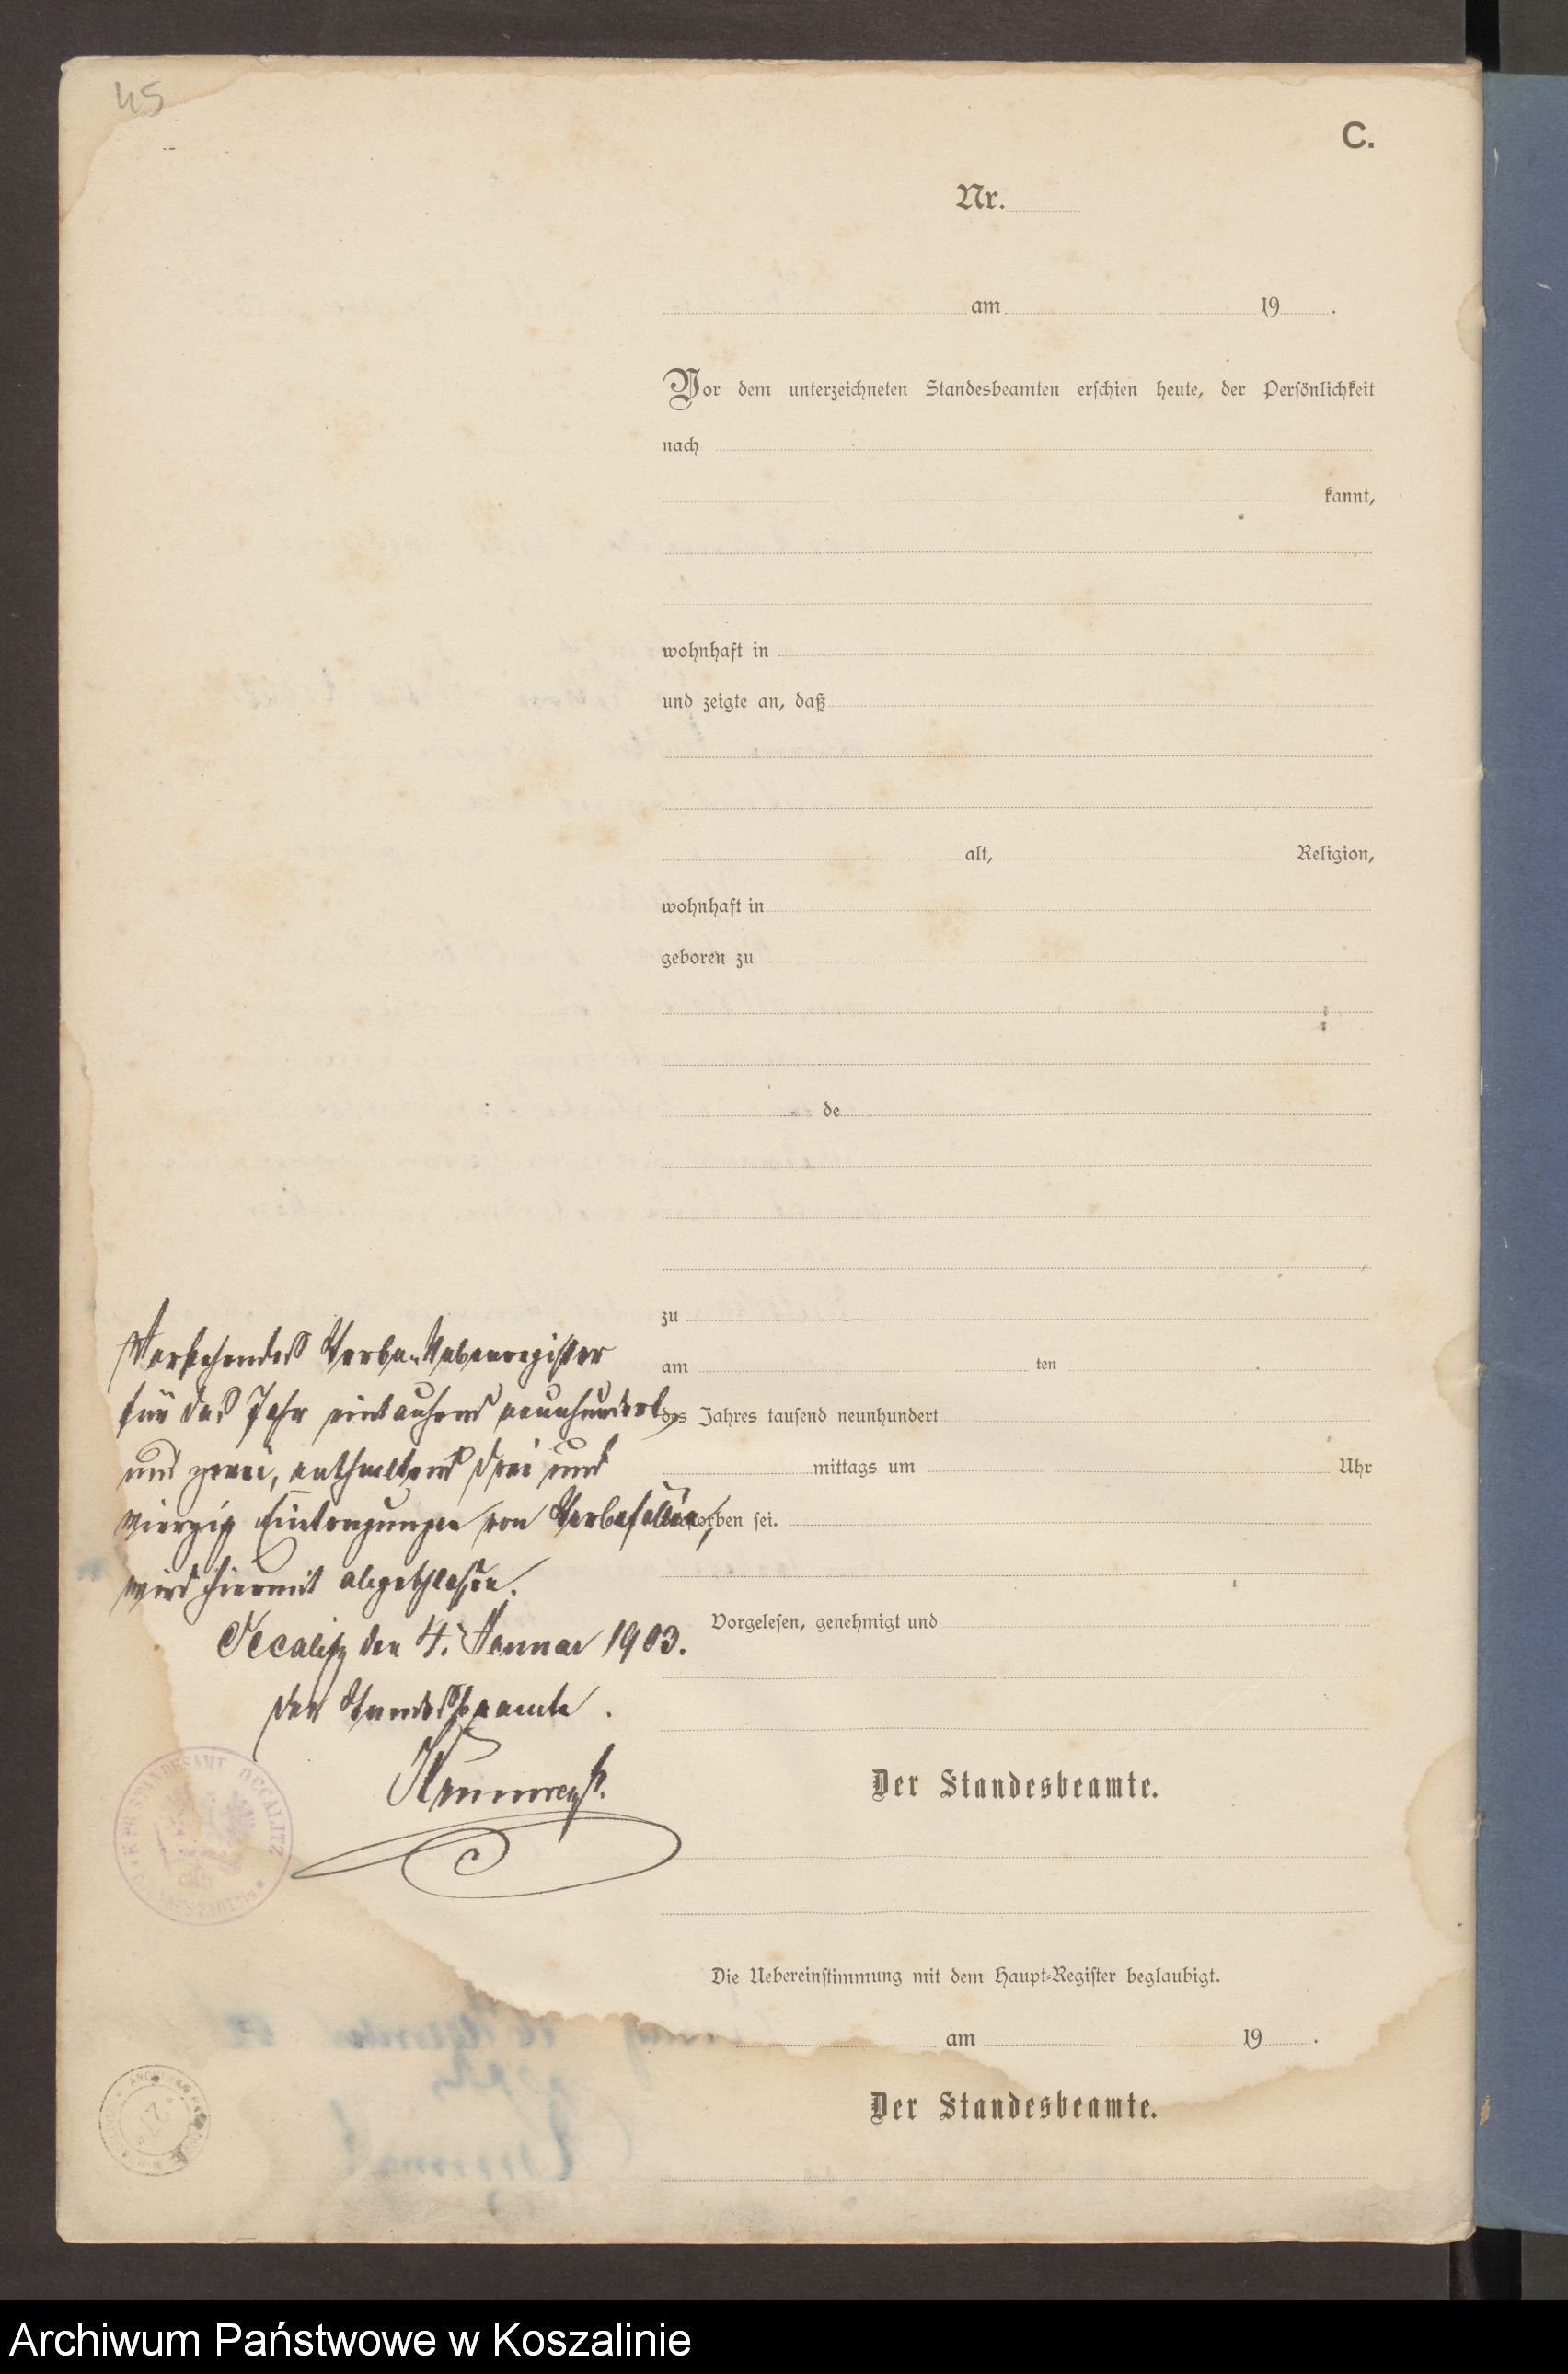 45
C.
Nr.
am 19 .
Vor dem unterzeichneten Standesbeamten erschien heute, der Persönlichkeit
nach
kannt,
wohnhaft in
und zeigte an, daß
alt, Religion,
wohnhaft in
geboren zu
de
zu
am ten
des Jahres tausend neunhundert
mittags um Uhr
storben sei.
Vorgelesen, genehmigt und
Der Standesbeamte.
Die Uebereinstimmung mit dem Haupt-Register beglaubigt.
am 19 .
Der Standesbeamte.
Vorstehendes Sterbe-Nebenregister
für das Jahr eintausend neunhundert
und zwei, enthaltend drei und
vierzig Eintragungen von Sterbefällen,
wird hiermit abgeschlossen.
Occalitz den 4. Januar 1903.
Der Standesbeamte.
STANDESAMT OCCALITZ
Archiwum Państwowe w Koszalinie